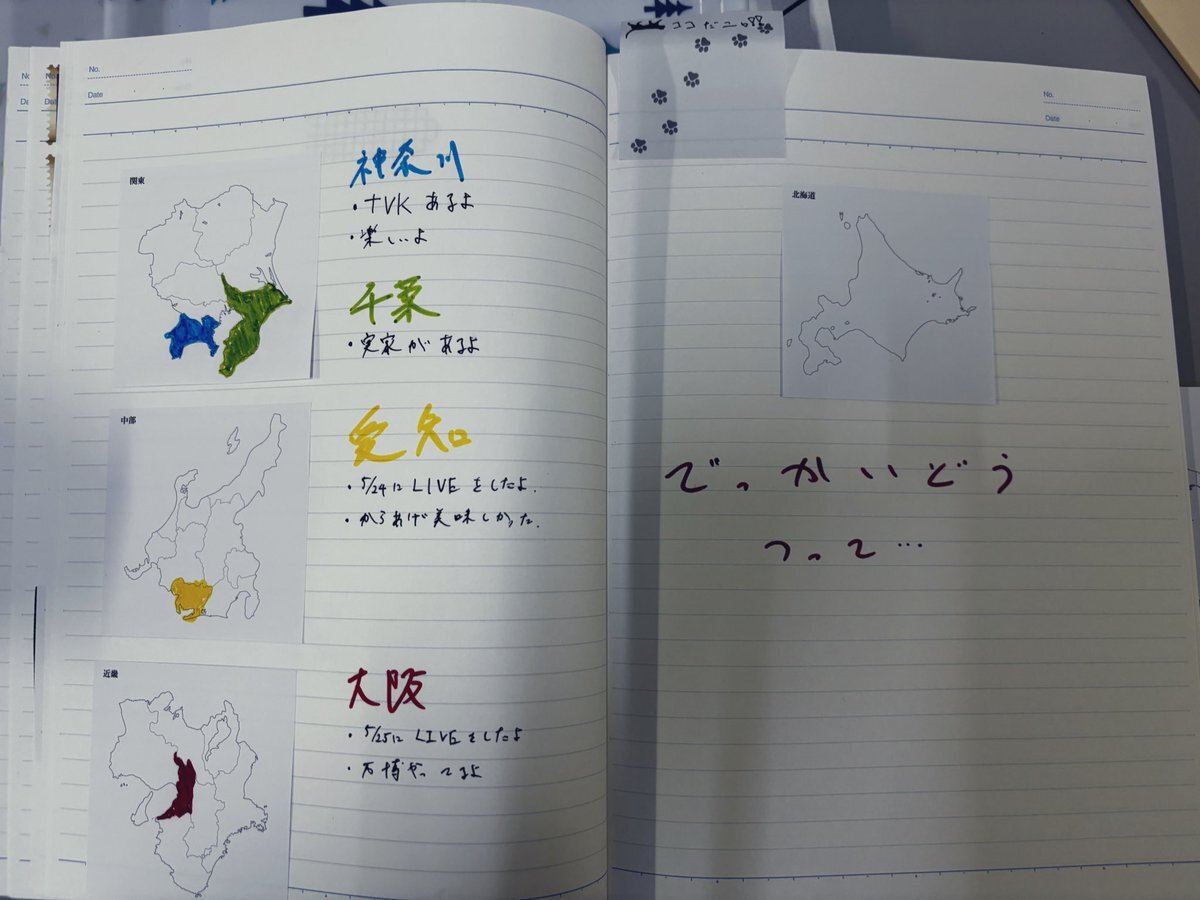 No.
Date
関東
神奈川
・tVK あるよ
・楽しいよ
千葉
・実家があるよ
中部
愛知
・5/24に LIVE をしたよ.
・からあげ美味しかった.
近畿
大阪
・5/25に LIVEをしたよ
・万博やってるよ
ココだニャ
No.
Date
北海道
でっかいどう
って…